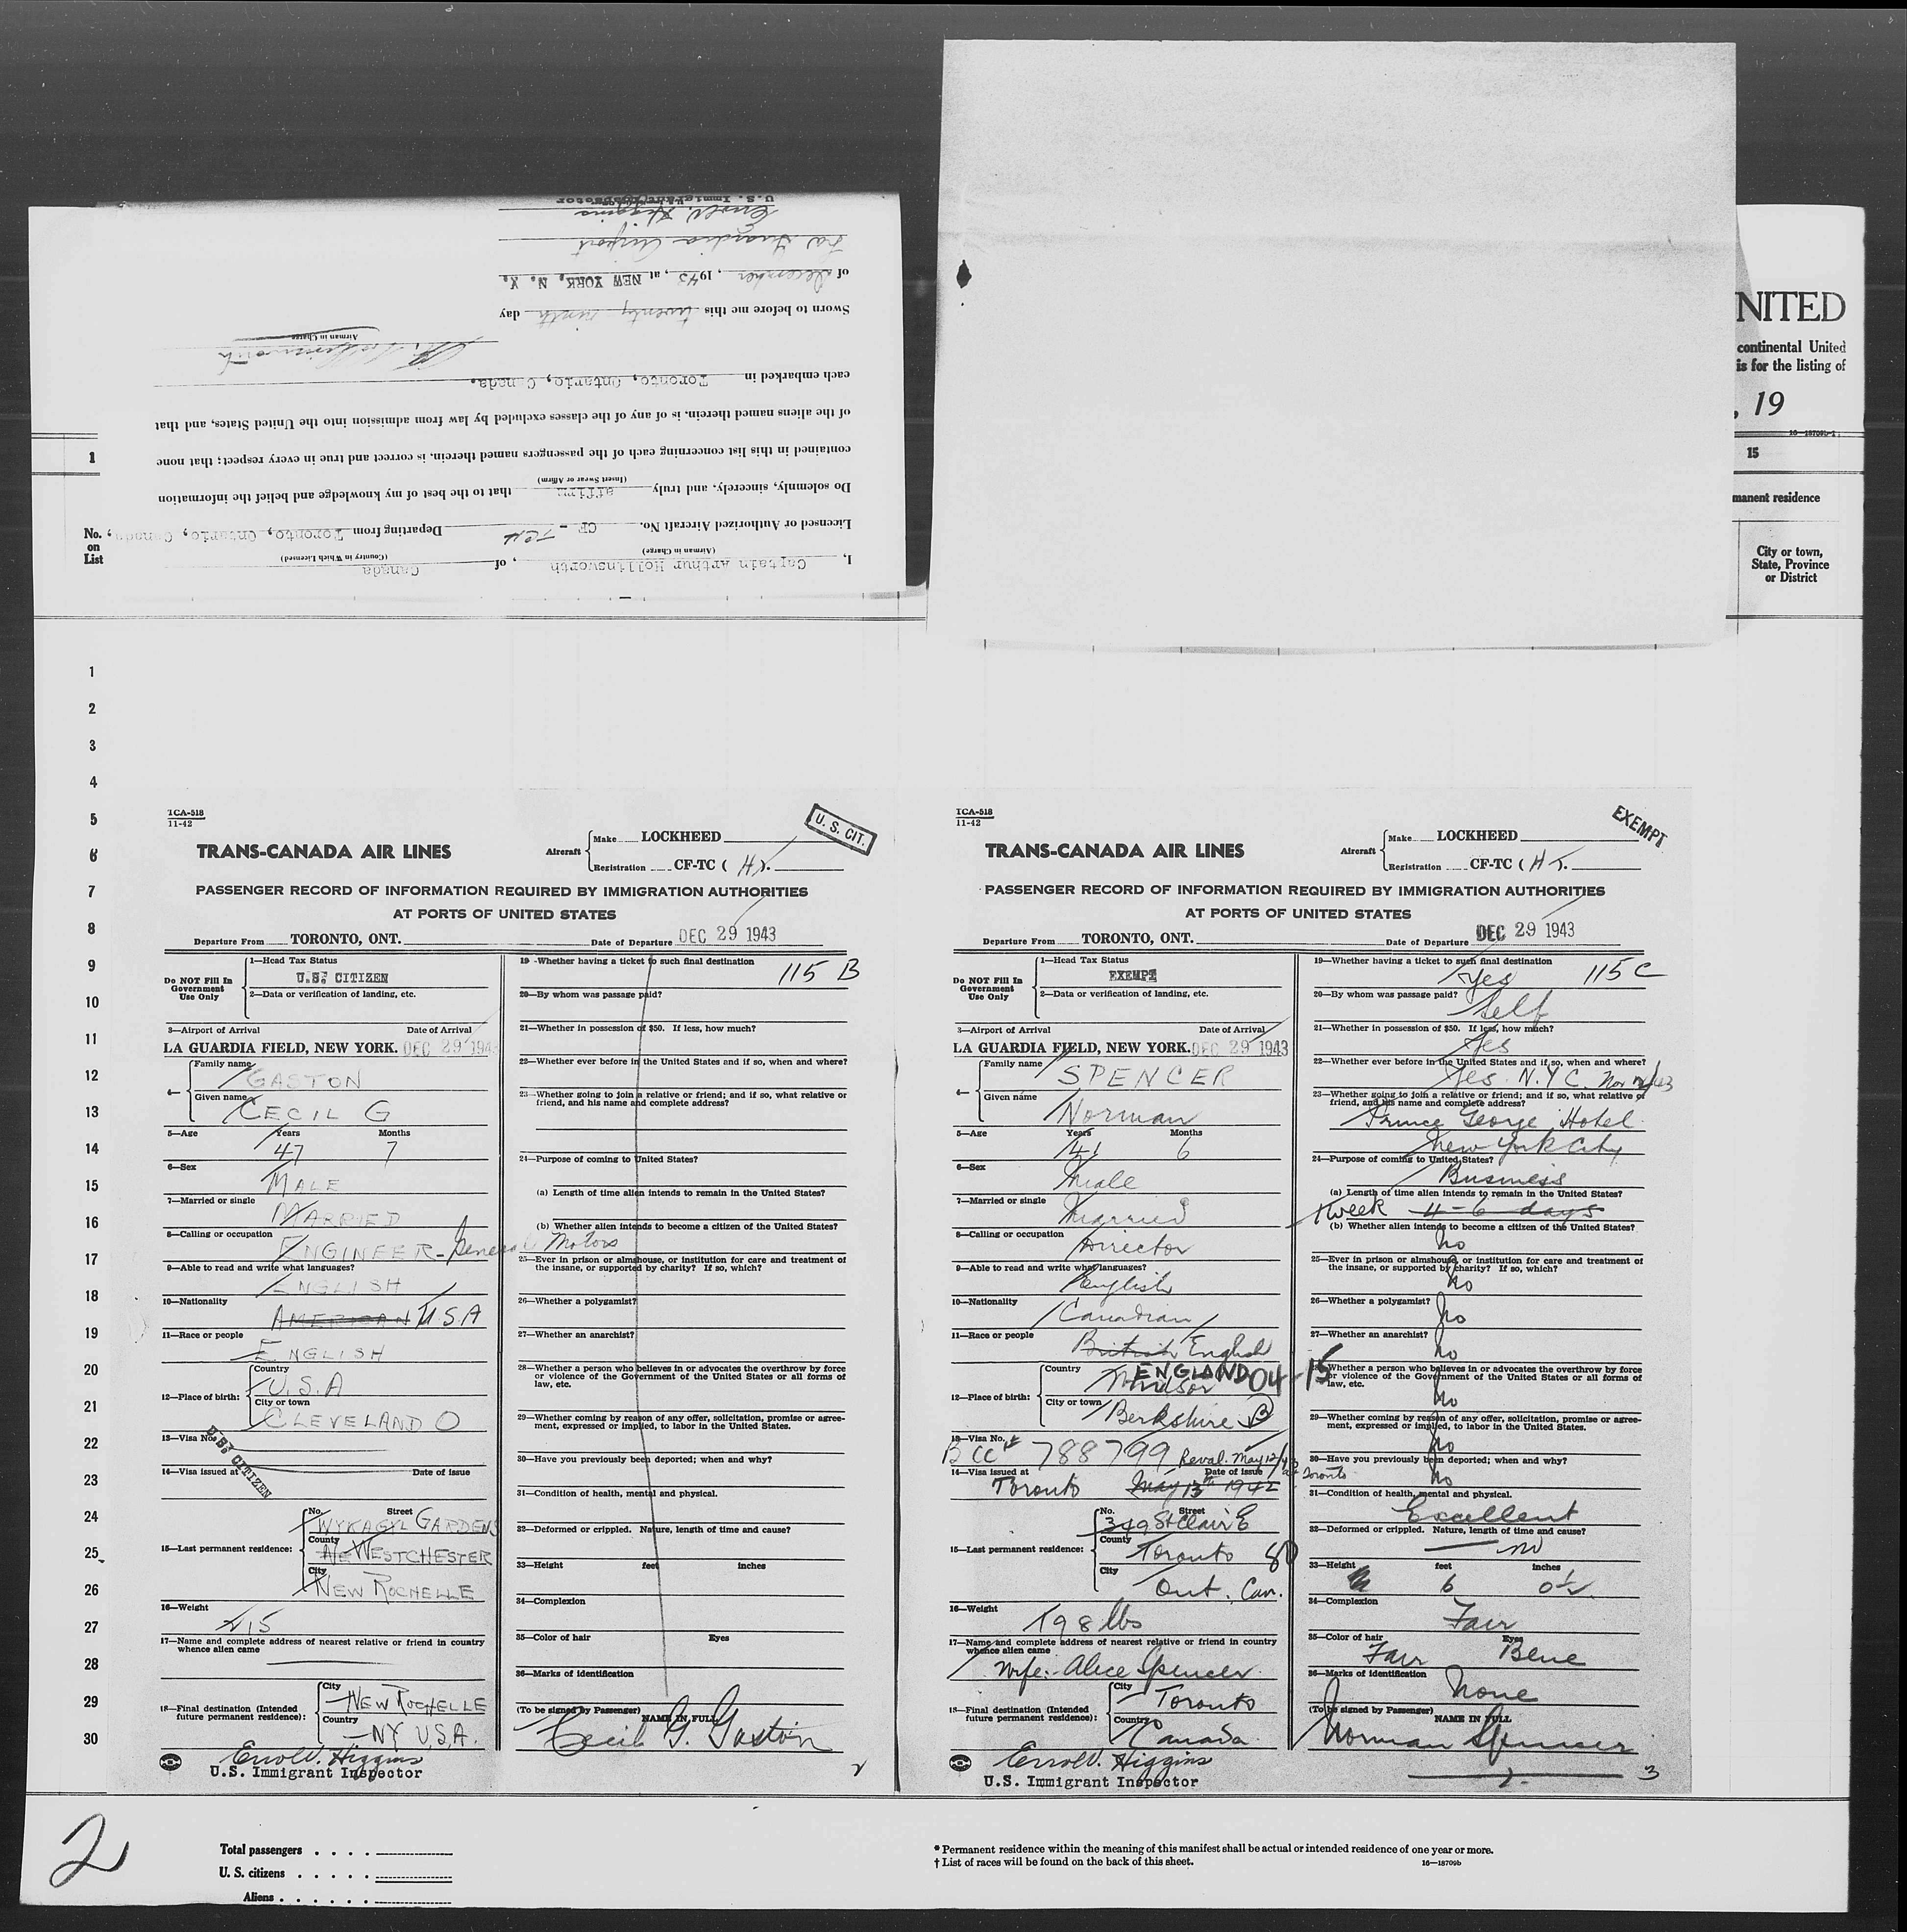 U.S. Immigrant Inspector
Errol V. Higgins
La Guardia Airport
of December, 1943, at NEW YORK, N. Y.
Sworn to before me this twenty ninth day
Airman in Charge
each embarked in Toronto, Ontario, Canada.
of the aliens named therein, is of any of the classes excluded by law from admission into the United States, and that
contained in this list concerning each of the passengers named therein, is correct and true in every respect; that none
(Insert Swear or Affirm)
Do solemnly, sincerely, and truly affirm that to the best of my knowledge and belief the information
Licensed or Authorized Aircraft No. CF - TCH Departing from Toronto, Ontario, Canada,
(Airman in Charge) (Country in Which Licensed)
I, Captain Arthur Hollinsworth, of Canada
1
No.
on
List
NITED
continental United
is for the listing of
, 19
16—18709b-1
15
manent residence
City or town,
State, Province
or District
1
2
3
4
5
6
7
8
9
10
11
12
13
14
15
16
17
18
19
20
21
22
23
24
25
26
27
28
29
30
TCA-518
11-42
U. S. CIT.
TRANS-CANADA AIR LINES
Aircraft
Make LOCKHEED
Registration CF-TC ( H ).
PASSENGER RECORD OF INFORMATION REQUIRED BY IMMIGRATION AUTHORITIES
AT PORTS OF UNITED STATES
Departure From TORONTO, ONT. Date of Departure DEC 29 1943
Do NOT Fill In
Government
Use Only
1—Head Tax Status
U.S. CITIZEN
2—Data or verification of landing, etc.
3—Airport of Arrival Date of Arrival
LA GUARDIA FIELD, NEW YORK. DEC 29 1943
4—
Family name
GASTON
Given name
CECIL G
5—Age Years Months
47 7
6—Sex
MALE
7—Married or single
MARRIED
8—Calling or occupation
ENGINEER - General Motors
9—Able to read and write what languages?
ENGLISH
10—Nationality
AMERICAN U.S.A
11—Race or people
ENGLISH
12—Place of birth:
Country
U.S.A
City or town
CLEVELAND O
13—Visa No.
U.S. CITIZEN
14—Visa issued at Date of issue
15—Last permanent residence:
No. Street
WYKAGYL GARDENS
County
WESTCHESTER
City
NEW ROCHELLE
16—Weight
215
17—Name and complete address of nearest relative or friend in country
whence alien came
18—Final destination (Intended
future permanent residence):
City
NEW ROCHELLE
Country
NY U.S.A.
Errol V. Higgins
U.S. Immigrant Inspector
19—Whether having a ticket to such final destination
115 B
20—By whom was passage paid?
21—Whether in possession of $50. If less, how much?
22—Whether ever before in the United States and if so, when and where?
23—Whether going to join a relative or friend; and if so, what relative or
friend, and his name and complete address?
24—Purpose of coming to United States?
(a) Length of time alien intends to remain in the United States?
(b) Whether alien intends to become a citizen of the United States?
25—Ever in prison or almshouse, or institution for care and treatment of
the insane, or supported by charity? If so, which?
26—Whether a polygamist?
27—Whether an anarchist?
28—Whether a person who believes in or advocates the overthrow by force
or violence of the Government of the United States or all forms of
law, etc.
29—Whether coming by reason of any offer, solicitation, promise or agree-
ment, expressed or implied, to labor in the United States.
30—Have you previously been deported; when and why?
31—Condition of health, mental and physical.
32—Deformed or crippled. Nature, length of time and cause?
33—Height feet inches
34—Complexion
35—Color of hair Eyes
36—Marks of identification
(To be signed by Passenger) NAME IN FULL
Cecil G. Gaston
2
TCA-518
11-42
EXEMPT
TRANS-CANADA AIR LINES
Aircraft
Make LOCKHEED
Registration CF-TC ( H ).
PASSENGER RECORD OF INFORMATION REQUIRED BY IMMIGRATION AUTHORITIES
AT PORTS OF UNITED STATES
Departure From TORONTO, ONT. Date of Departure DEC 29 1943
Do NOT Fill In
Government
Use Only
1—Head Tax Status
EXEMPT
2—Data or verification of landing, etc.
3—Airport of Arrival Date of Arrival
LA GUARDIA FIELD, NEW YORK. DEC 29 1943
4—
Family name
SPENCER
Given name
Norman
5—Age Years Months
41 6
6—Sex
Male
7—Married or single
Married
8—Calling or occupation
Director
9—Able to read and write what languages?
English
10—Nationality
Canadian
11—Race or people
British English
12—Place of birth:
Country
ENGLAND 04-15
Windsor
City or town
Berkshire
13—Visa No.
BCC# 788799 Reval. May 12/43 at Toronto
14—Visa issued at Date of issue
Toronto May 13th 1942
15—Last permanent residence:
No. Street
349 St Clair E
County
Toronto 80
City
Ont. Can.
16—Weight
198 lbs
17—Name and complete address of nearest relative or friend in country
whence alien came
Wife:- Alice Spencer
18—Final destination (Intended
future permanent residence):
City
Toronto
Country
Canada
Errol V. Higgins
U.S. Immigrant Inspector
19—Whether having a ticket to such final destination
Yes 115 C
20—By whom was passage paid?
Self
21—Whether in possession of $50. If less, how much?
Yes
22—Whether ever before in the United States and if so, when and where?
Yes. N.Y.C. Nov /43
23—Whether going to join a relative or friend; and if so, what relative or
friend, and his name and complete address?
Prince George Hotel
New York City
24—Purpose of coming to United States?
Business
(a) Length of time alien intends to remain in the United States?
1 week 4-6 days
(b) Whether alien intends to become a citizen of the United States?
No
25—Ever in prison or almshouse, or institution for care and treatment of
the insane, or supported by charity? If so, which?
No
26—Whether a polygamist?
No
27—Whether an anarchist?
No
Whether a person who believes in or advocates the overthrow by force
or violence of the Government of the United States or all forms of
law, etc.
No
29—Whether coming by reason of any offer, solicitation, promise or agree-
ment, expressed or implied, to labor in the United States.
No
30—Have you previously been deported; when and why?
No
31—Condition of health, mental and physical.
Excellent
32—Deformed or crippled. Nature, length of time and cause?
No
33—Height feet inches
6 0½
34—Complexion
Fair
35—Color of hair Eyes
Fair Blue
36—Marks of identification
None
(To be signed by Passenger) NAME IN FULL
Norman Spencer
3
2
Total passengers
U. S. citizens
Aliens
* Permanent residence within the meaning of this manifest shall be actual or intended residence of one year or more.
† List of races will be found on the back of this sheet. 16—18709b